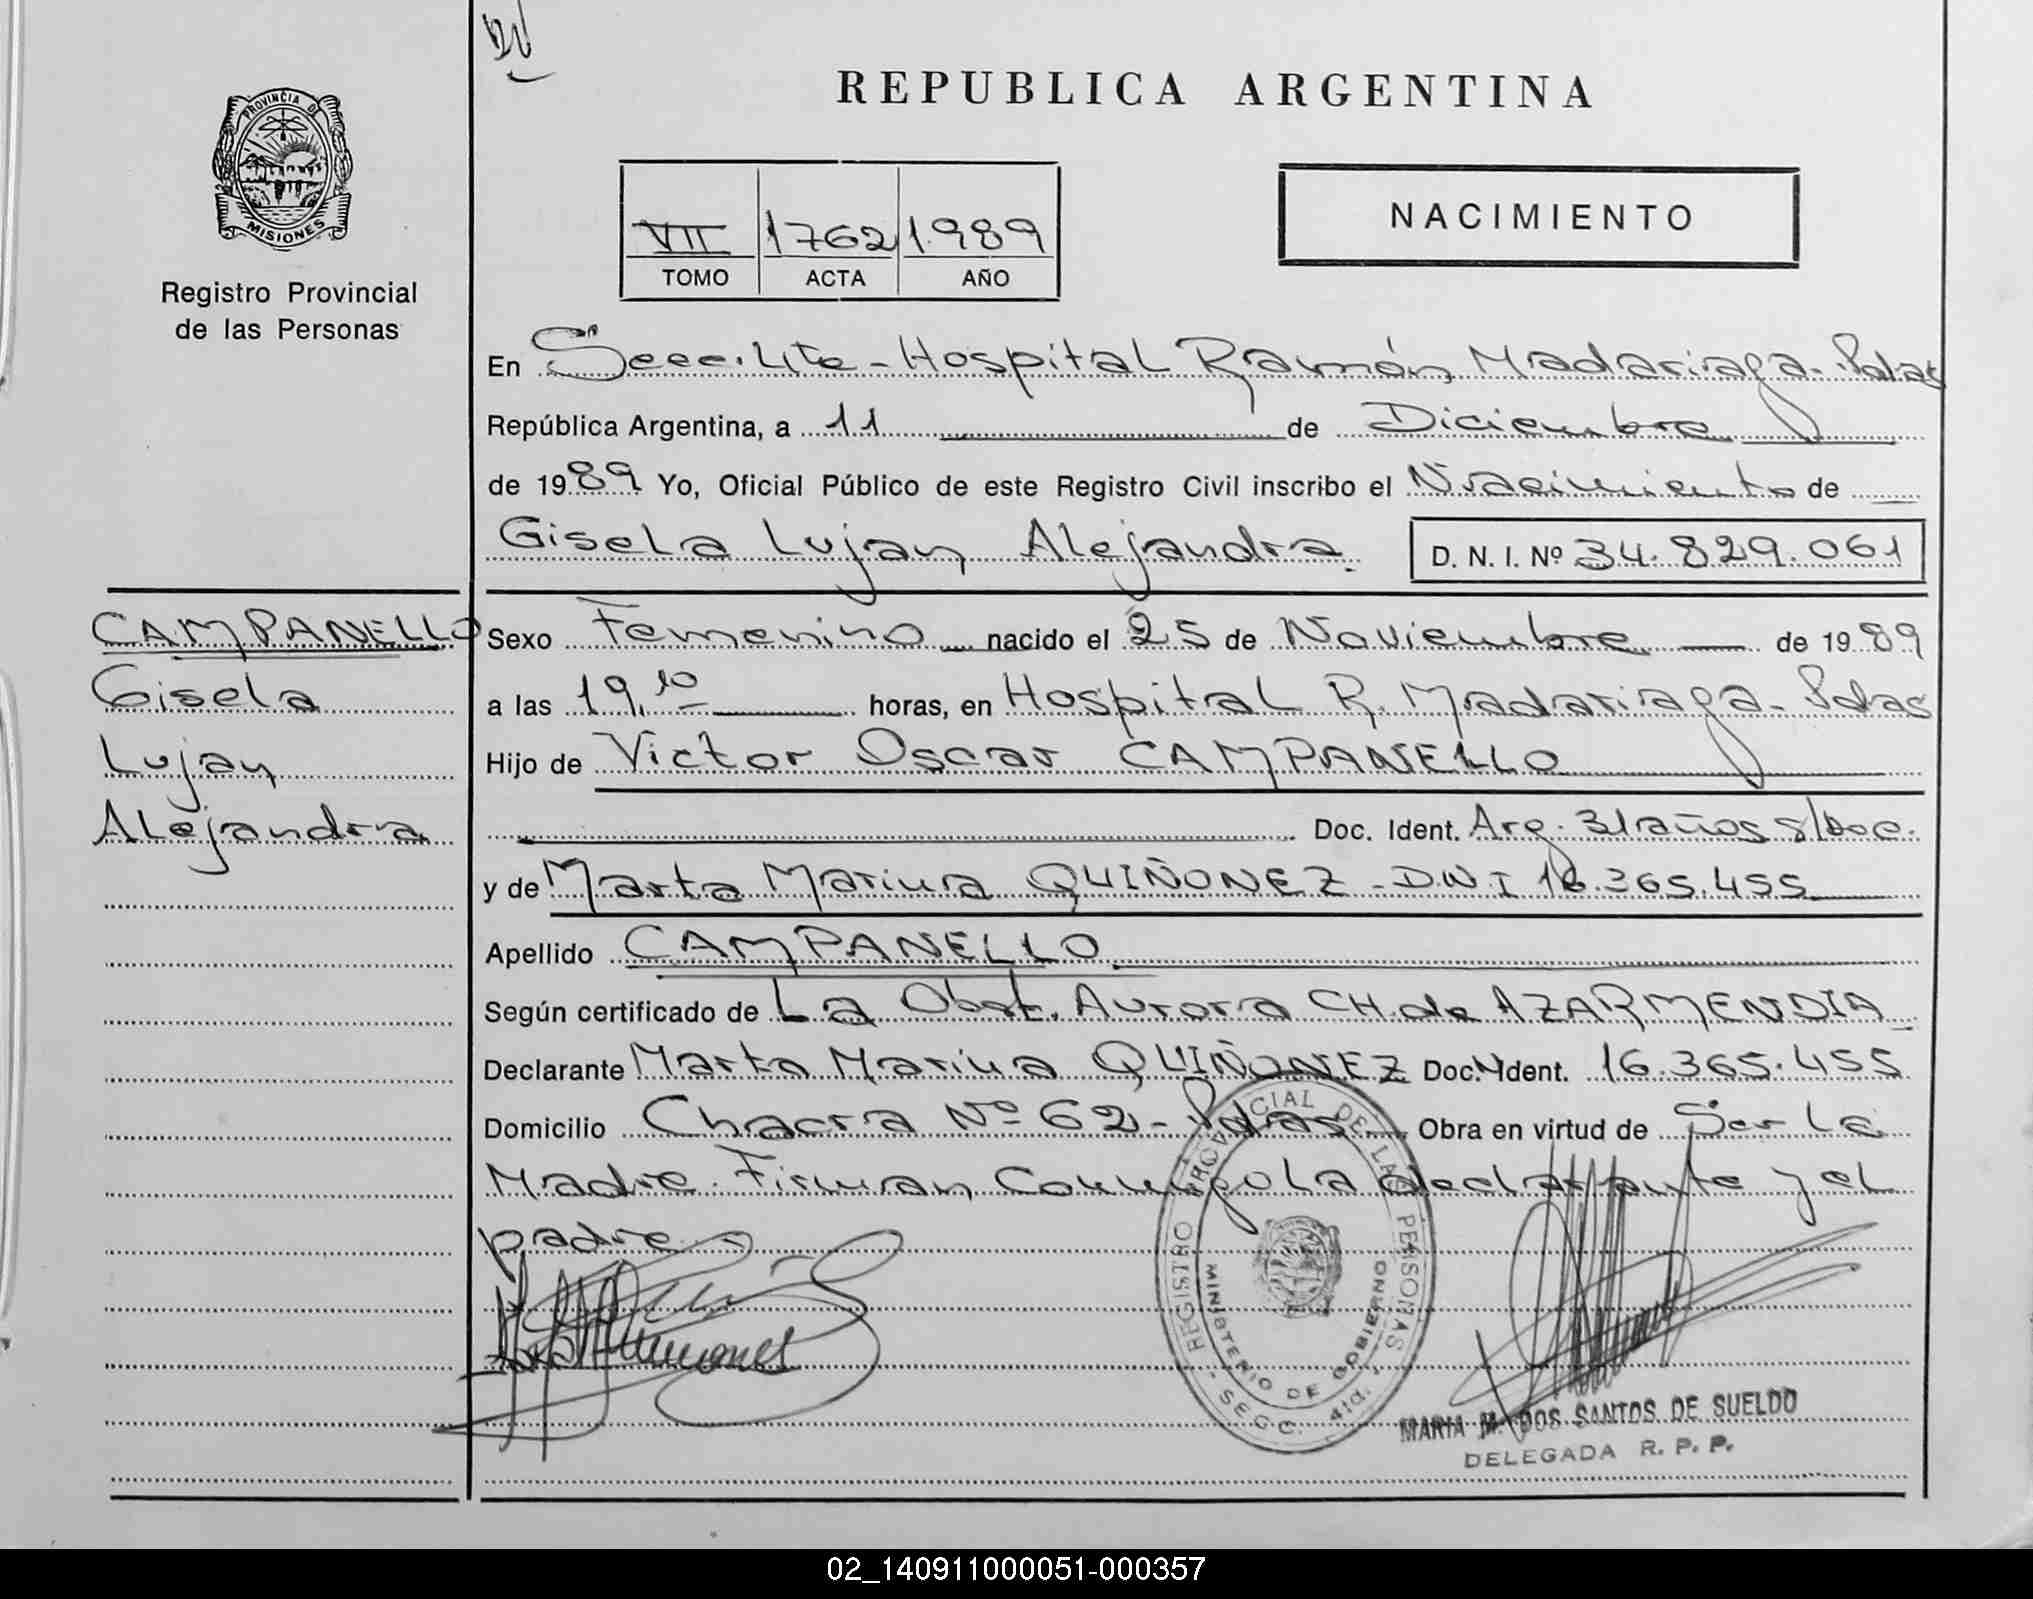 REPUBLICA ARGENTINA
PROVINCIA DE
MISIONES
Registro Provincial
de las Personas
VII 1762 1989
TOMO ACTA AÑO
NACIMIENTO
En Secc. 4ta - Hospital Ramón Madariaga - Pdas
República Argentina, a 11 de Diciembre
de 1989 Yo, Oficial Público de este Registro Civil inscribo el Nacimiento de
Gisela Lujan Alejandra D. N. I. Nº 34.829.061
CAMPANELLO
Gisela
Lujan
Alejandra
Sexo Femenino nacido el 25 de Noviembre de 1989
a las 19,10 horas, en Hospital R. Madariaga - Pdas
Hijo de Victor Oscar CAMPANELLO
Doc. Ident. Arg. 31 años s/doc.
y de Marta Marina QUIÑONEZ - D.N.I 16.365.455
Apellido CAMPANELLO
Según certificado de La Obst. Aurora CH. de AZARMENDIA
Declarante Marta Marina QUIÑONEZ Doc. Ident. 16.365.455
Domicilio Chacra Nº 62 - Pdas Obra en virtud de Ser la
Madre. Firman Conmigo la declarante y el
padre
REGISTRO PROVINCIAL DE LAS PERSONAS
MINISTERIO DE GOBIERNO
SECC. 4ta.
MARIA M. DOS SANTOS DE SUELDO
DELEGADA R. P. P.
02_140911000051-000357